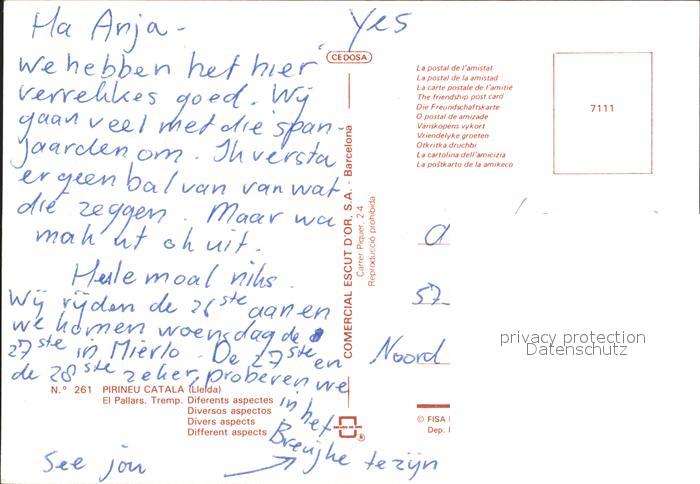 Ha Anja -
Yes
we hebben het hier
verrekkes goed. Wij
gaan veel met die span-
jaarden om. Ik versta
er geen bal van van wat
die zeggen. Maar wa
mak ut ok uit.
Hele moal niks.
Wij rijden de 26ste aan en
we komen woensdag de
27ste in Mierlo. De 27ste en
de 28ste zeker, proberen we
in het
Breughe te zijn
See jou
N.º 261 PIRINEU CATALA (Lleida)
El Pallars. Tremp. Diferents aspectes
Diversos aspectos
Divers aspects
Different aspects
CEDOSA
COMERCIAL ESCUT D'OR, S.A. - Barcelona
Carrer Piquer, 2-4
Reproducció prohibida
®
La postal de l'amistat
La postal de la amistad
La carte postale de l'amitié
The friendship post card
Die Freundschaftskarte
O postal de amizade
Vanskopens vykort
Vriendelyke groeten
Otkritka druchbi
La cartolina dell'amicizia
La poŝtkarto de la amikeco
7111
a
57
Noord
privacy protection
Datenschutz
© FISA
Dep.